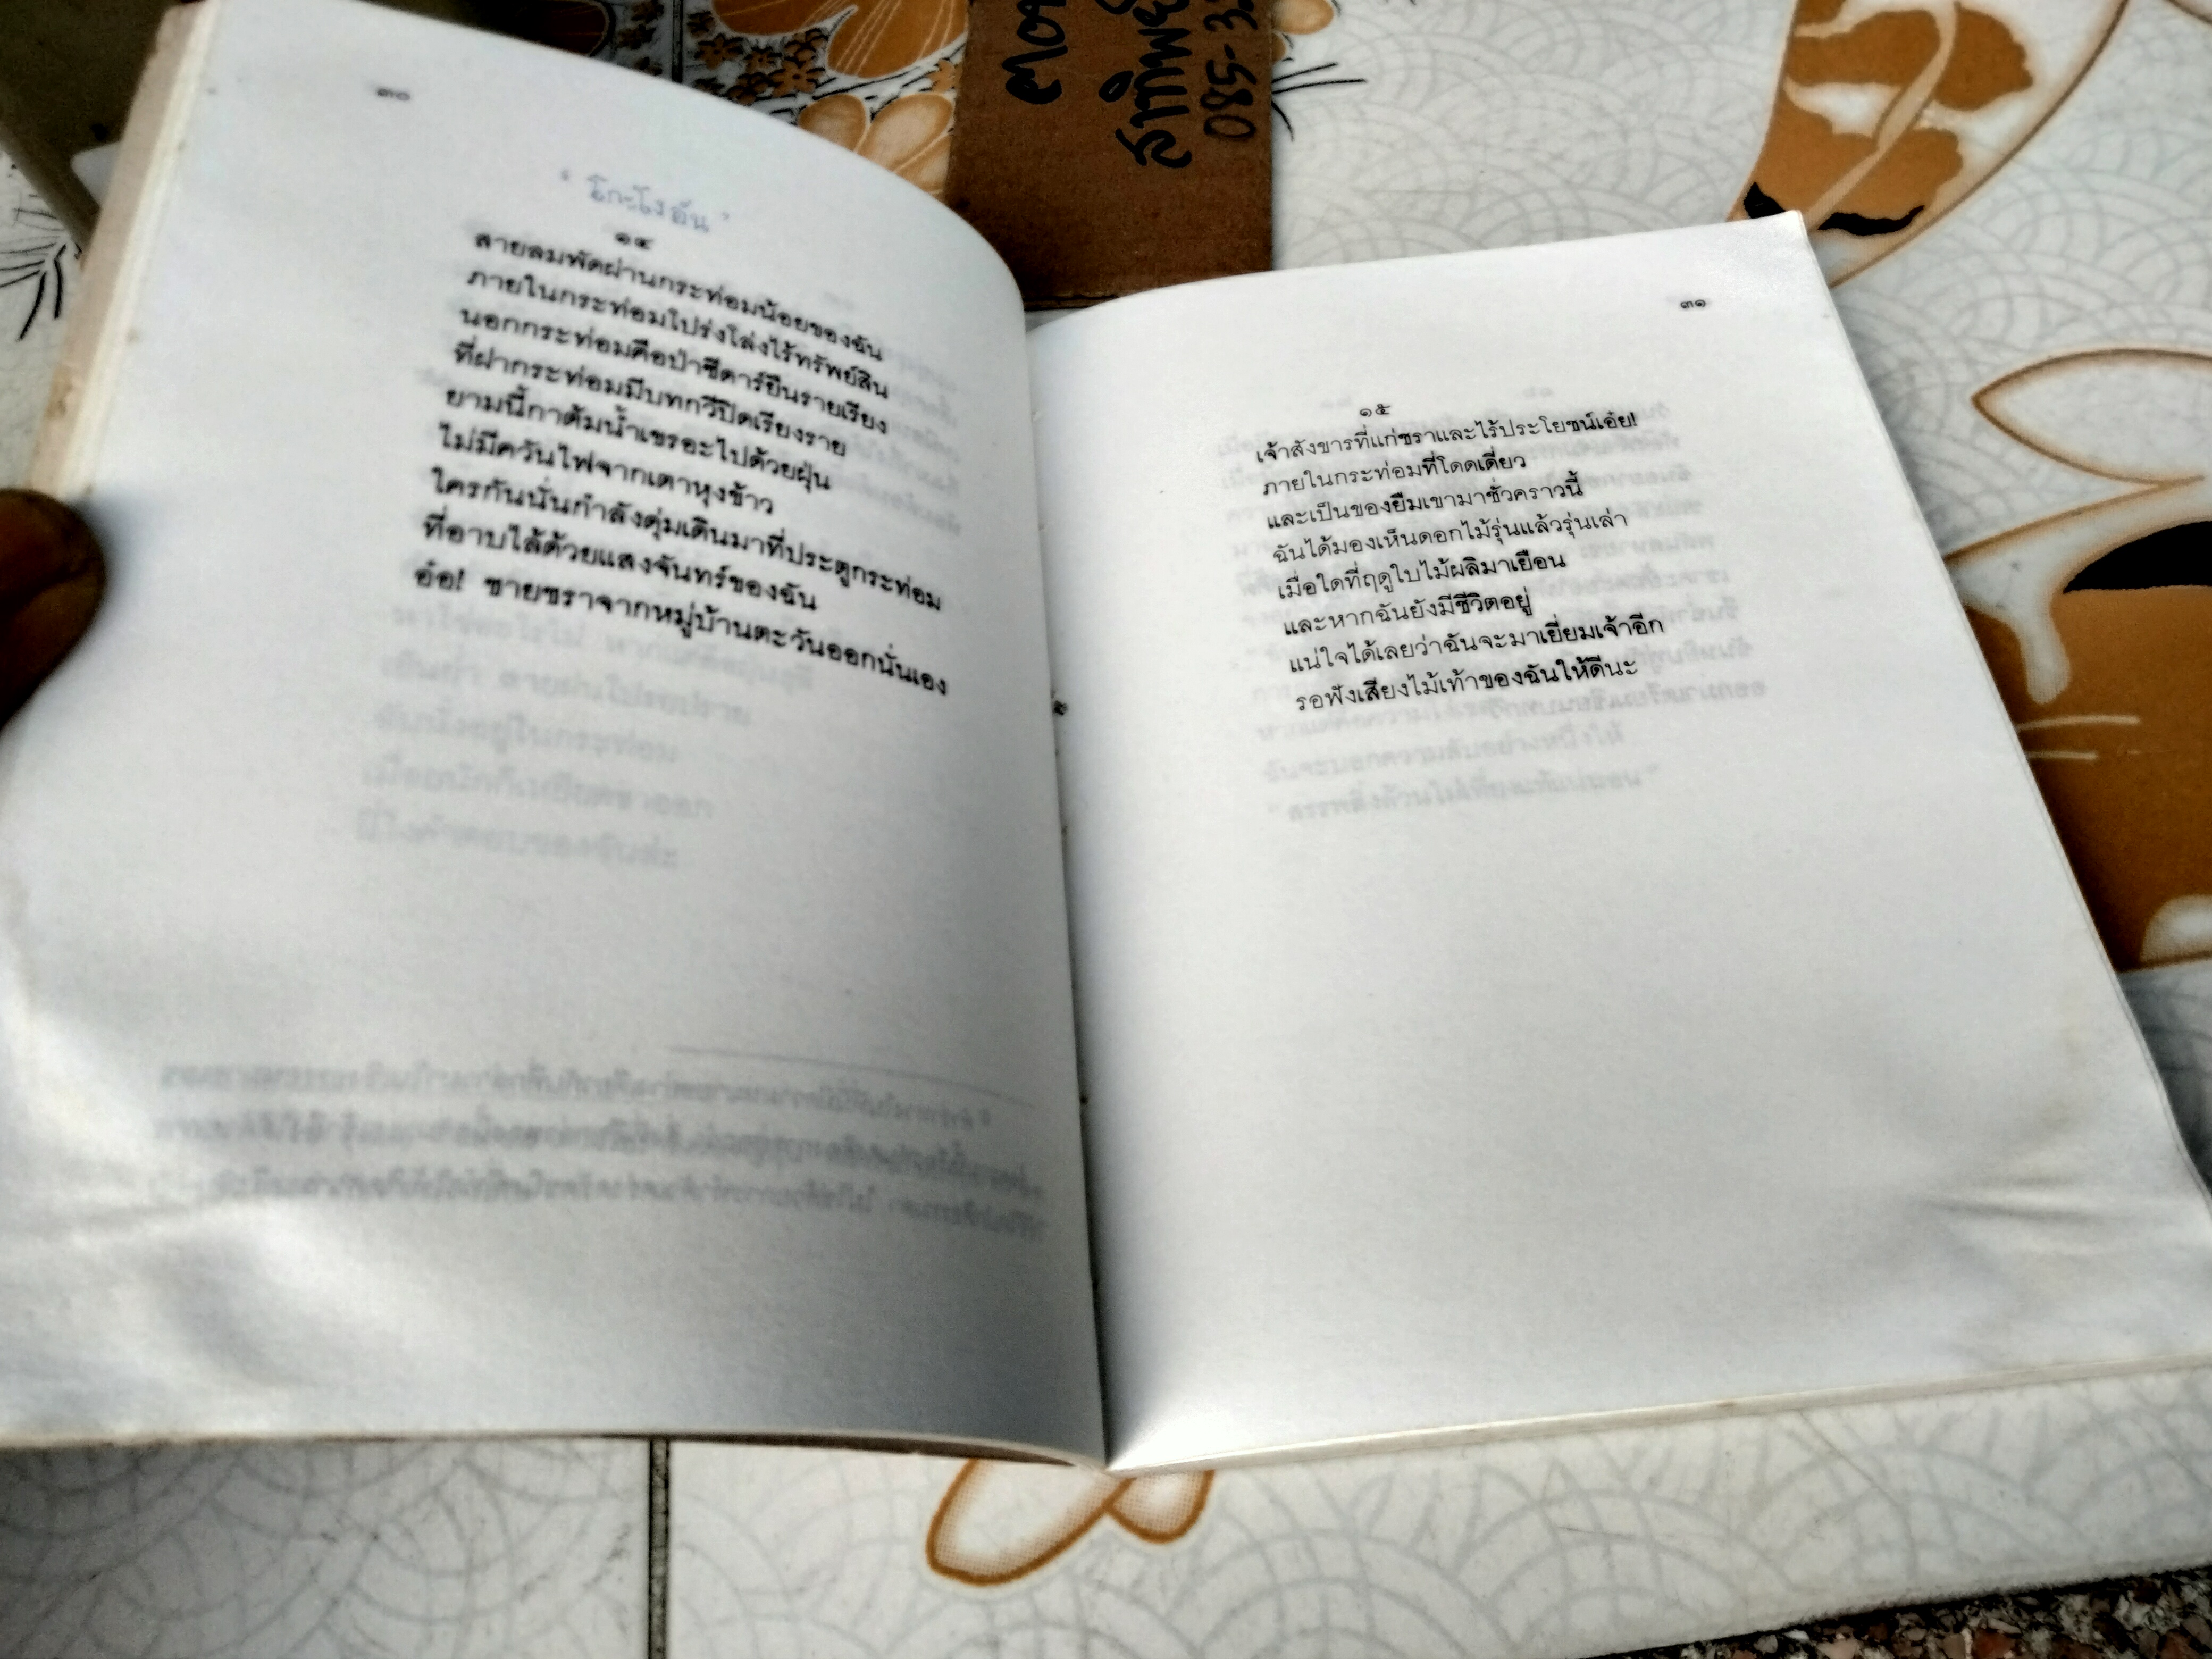 ๓๐
' โกะโงอัน '
๑๔
สายลมพัดผ่านกระท่อมน้อยของฉัน
ภายในกระท่อมโปร่งโล่งไร้ทรัพย์สิน
นอกกระท่อมคือป่าซีดาร์ยืนรายเรียง
ที่ฝากระท่อมมีบทกวีปิดเรียงราย
ยามนี้กาต้มน้ำเขรอะไปด้วยฝุ่น
ไม่มีควันไฟจากเตาหุงข้าว
ใครกันนั่นกำลังดุ่มเดินมาที่ประตูกระท่อม
ที่อาบไล้ด้วยแสงจันทร์ของฉัน
อ๋อ! ชายชราจากหมู่บ้านตะวันออกนั่นเอง
๓๑
๑๕
เจ้าสังขารที่แก่ชราและไร้ประโยชน์เอ๋ย!
ภายในกระท่อมที่โดดเดี่ยว
และเป็นของยืมเขามาชั่วคราวนี้
ฉันได้มองเห็นดอกไม้รุ่นแล้วรุ่นเล่า
เมื่อใดที่ฤดูใบไม้ผลิมาเยือน
และหากฉันยังมีชีวิตอยู่
แน่ใจได้เลยว่าฉันจะมาเยี่ยมเจ้าอีก
รอฟังเสียงไม้เท้าของฉันให้ดีนะ
085-3